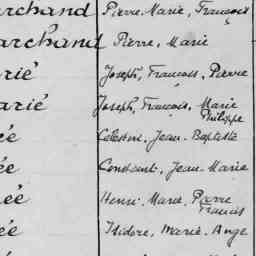 archand Pierre Marie, François
archand Pierre, Marie
rié Joseph, François, Pierre
arié Joseph, François, Marie
Philippe
ée Célestin, Jean-Baptiste
ée Constant, Jean-Marie
ée Henri, Marie, Pierre
Francis
ée Isidore, Marie-Ange